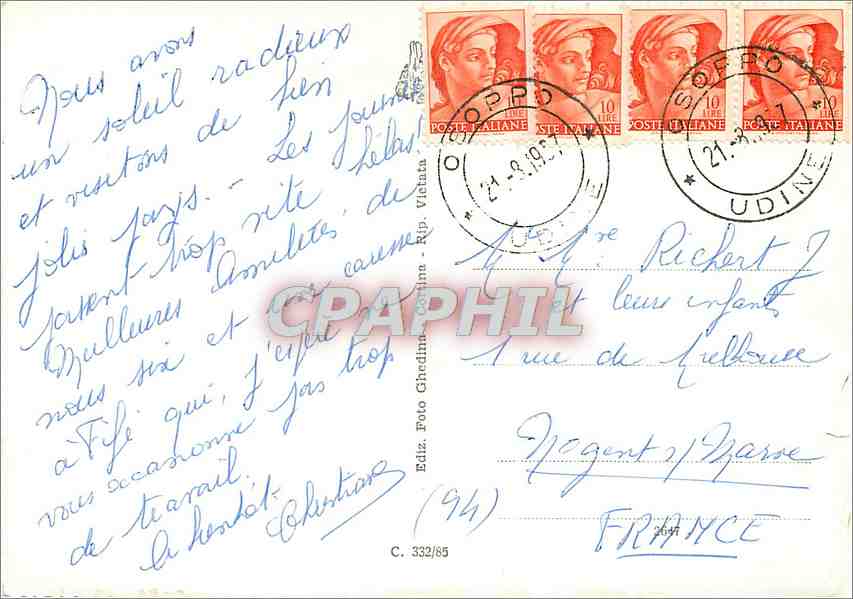 Nous avons
un soleil radieux
et visitons de bien
jolis pays. - Les journées
passent trop vite hélas!
Meilleures Amitiés de
nous six et une caresse
à Fifi qui, j'espère ne
vous occasionne pas trop
de travail.
A bientôt.
Christiane
Ediz. Foto Ghedina - Cortina - Rip. Vietata
C. 332/85
10
LIRE
POSTE ITALIANE
10
LIRE
POSTE ITALIANE
10
LIRE
POSTE ITALIANE
10
LIRE
POSTE ITALIANE
OSOPPO
21.-8.1967
UDINE
OSOPPO
21.-8.1967
UDINE
M. Mme Richert J
et leurs enfants
1 rue de
Nogent s/Marne
(94)
FRANCE
2647
CPAPHIL